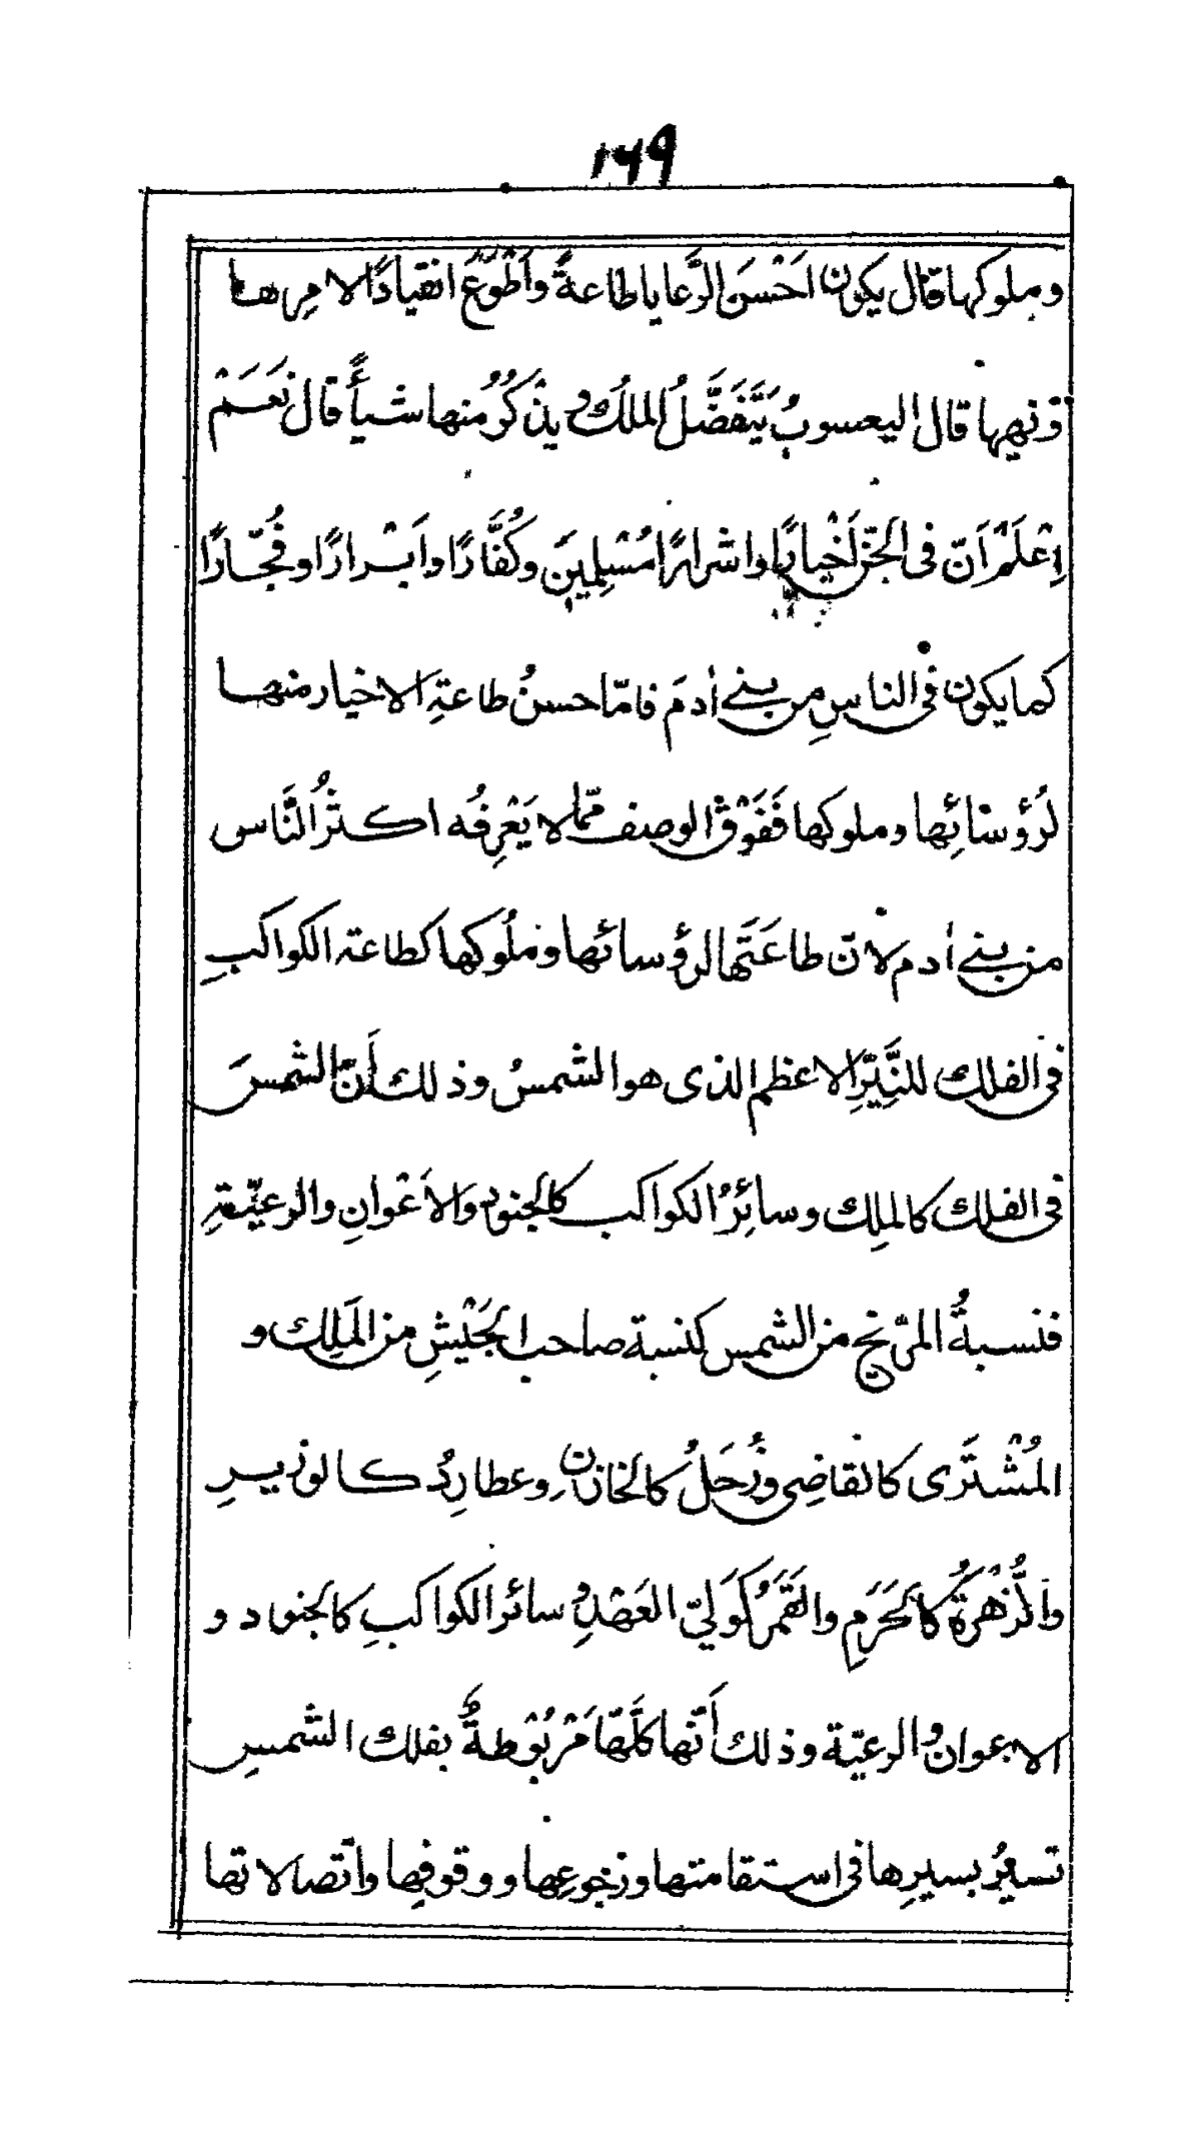 ١٦٩
وملوكها قال يكون اَحْسَنَ الرَّعايا طاعةً واَطْوَعَ انقيادًا لامرِها
ونهيها قال اليعسوبُ يَتَفَضَّلُ الملكُ ويذْكُرُ منها شيأً قال نَعَمْ
اِعْلَمْ اَنّ فى الجنّ اَخْيارًا واشرارًا مُسْلِمينَ وكُفَّارًا واَبْرارًا وفُجّارًا
كما يكون فى الناسِ من بنے اٰدمَ فامّا حسنُ طاعةِ الاخيار منها
لرُؤسائِها وملوكها فَفَوْقَ الوصف ممّا لا يَعْرِفُه اكثرُ النَّاس
من بنے اٰدم لانّ طاعَتَها لرؤسائها وملُوكها كطاعة الكواكبِ
فى الفلك للنَّيِّرِ الاعظم الذى هو الشمسُ وذلك أنّ الشمسَ
فى الفلك كالملِك وسائِرُ الكواكب كالجنود والاَعْوانِ والرعيّةِ
فنسبةُ المرّيخ من الشمس كنسبة صاحب الجَيْشِ من المَلِك و
المُشْتَرى كالقاضِى وزُحَلُ كالخازنِ وعطارِدُ كالوزيرِ
والزُّهْرَةُ كالحَرَمِ والقَمَرُ كَوَلىّ العَهْدِ وسائر الكواكبِ كالجنود و
الاعوان والرعيّة وذلك أَنّها كلَّها مَرْبُوْطةٌ بفلك الشمسِ
تسيرُ بسيرِها فى استقامتها ورجوعِها ووقوفِها واتّصالاتها